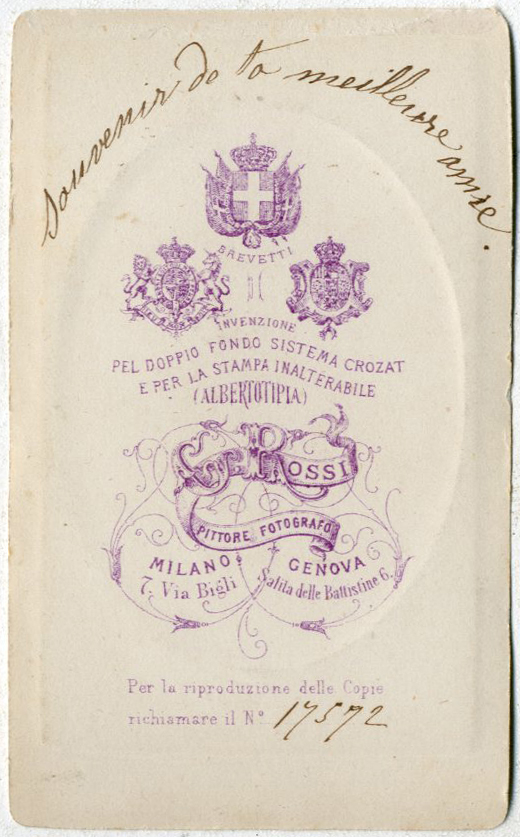 Souvenir de ta meilleure amie.
BREVETTI
DI
INVENZIONE
PEL DOPPIO FONDO SISTEMA CROZAT
E PER LA STAMPA INALTERABILE
(ALBERTOTIPIA)
G. ROSSI
PITTORE FOTOGRAFO
MILANO
7. Via Bigli
GENOVA
Salita delle Battistine 6.
Per la riproduzione delle Copie
richiamare il Nº 17572